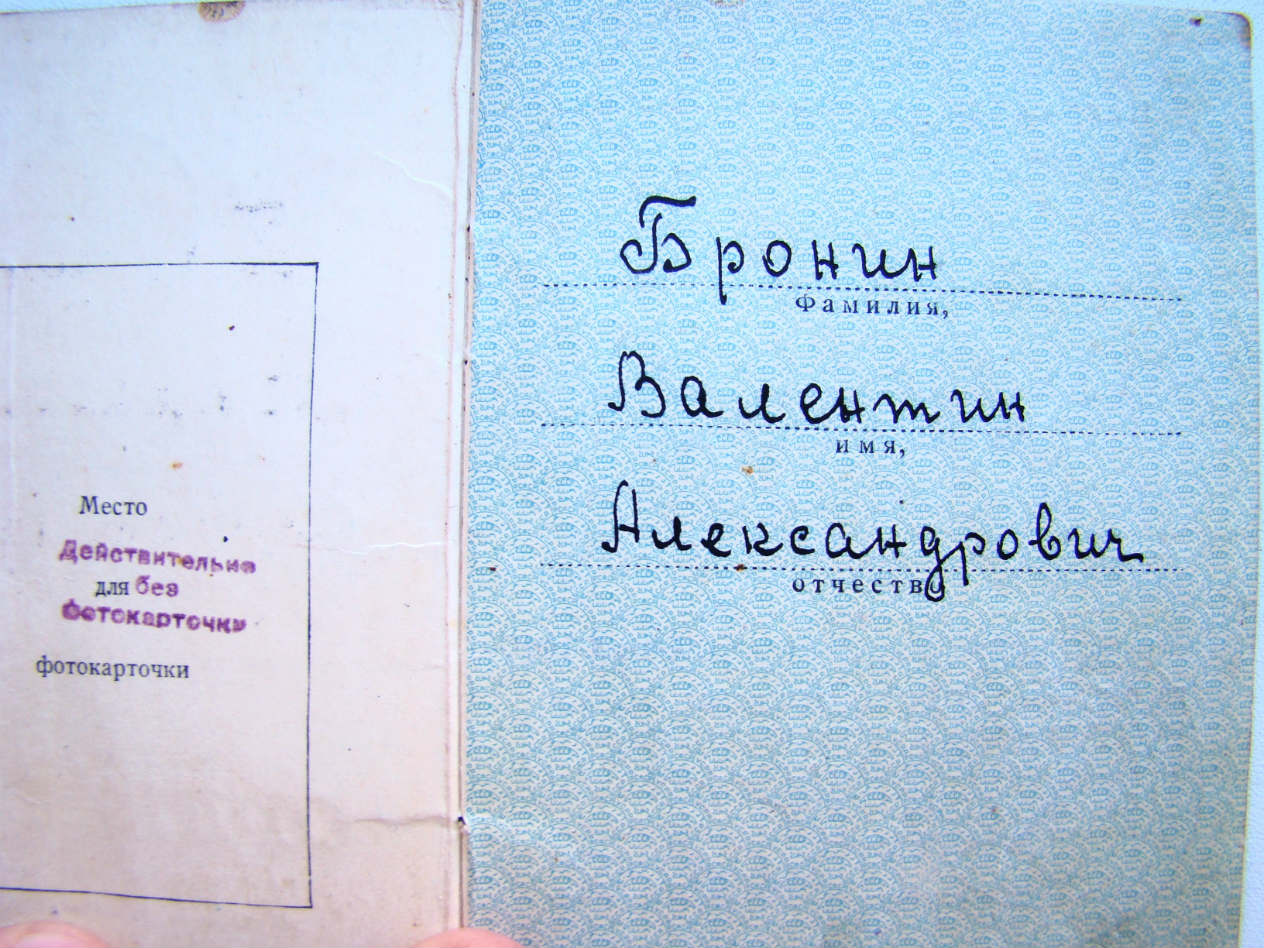 Место
Действительно
для без
Фотокарточки
фотокарточки
Бронин
Фамилия,
Валентин
имя,
Александрович
отчество